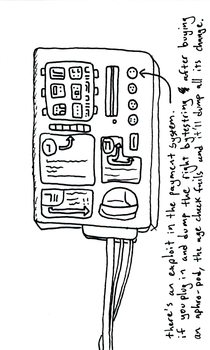 there's an exploit in the payment system.
if you plug in and dump the right bytestring & after buying
an aphro-pod, the age check fails and it'll dump all its change.